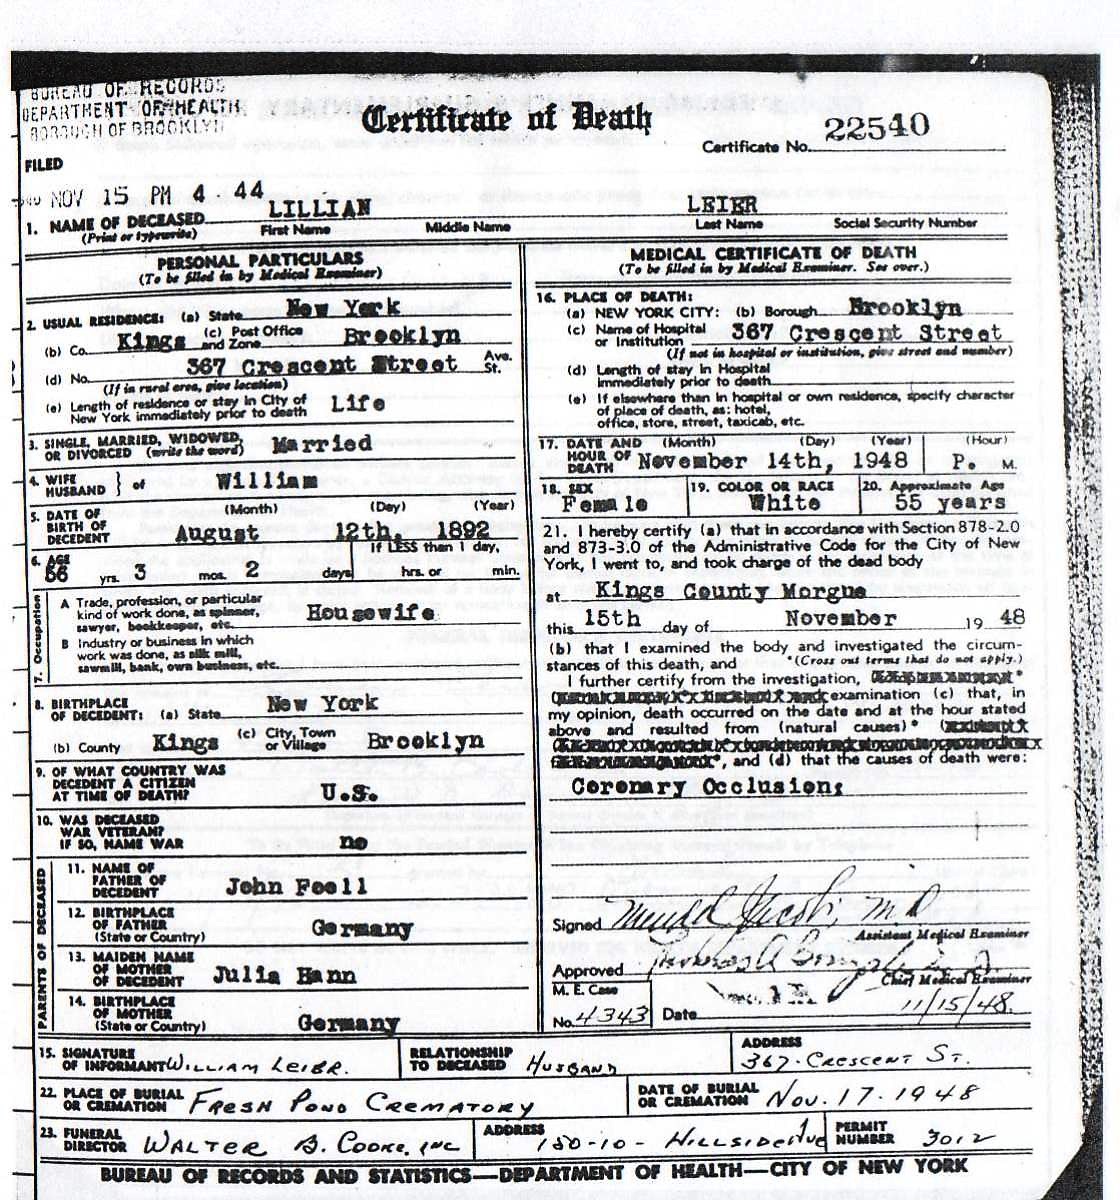 BUREAU OF RECORDS
DEPARTMENT OF HEALTH
BOROUGH OF BROOKLYN
Certificate of Death
Certificate No. 22540
FILED
NOV 15 PM 4 44
1. NAME OF DECEASED LILLIAN LEIER
(Print or typewrite) First Name Middle Name Last Name Social Security Number
PERSONAL PARTICULARS
(To be filled in by Medical Examiner)
2. USUAL RESIDENCE: (a) State New York
(b) Co. Kings (c) Post Office and Zone Brooklyn
(d) No. 367 Crescent Street Ave. St.
(If in rural area, give location)
(e) Length of residence or stay in City of New York immediately prior to death Life
3. SINGLE, MARRIED, WIDOWED, OR DIVORCED (write the word) Married
4. WIFE HUSBAND } of William
5. DATE OF BIRTH OF DECEDENT (Month) (Day) (Year)
August 12th, 1892
6. AGE 56 yrs. 3 mos. 2 days If LESS than 1 day, hrs. or min.
7. Occupation
A Trade, profession, or particular kind of work done, as spinner, sawyer, bookkeeper, etc. Housewife
B Industry or business in which work was done, as silk mill, sawmill, bank, own business, etc.
8. BIRTHPLACE OF DECEDENT: (a) State New York
(b) County Kings (c) City, Town or Village Brooklyn
9. OF WHAT COUNTRY WAS DECEDENT A CITIZEN AT TIME OF DEATH? U.S.
10. WAS DECEASED WAR VETERAN? IF SO, NAME WAR no
PARENTS OF DECEASED
11. NAME OF FATHER OF DECEDENT John Foell
12. BIRTHPLACE OF FATHER (State or Country) Germany
13. MAIDEN NAME OF MOTHER OF DECEDENT Julia Hann
14. BIRTHPLACE OF MOTHER (State or Country) Germany
MEDICAL CERTIFICATE OF DEATH
(To be filled in by Medical Examiner. See over.)
16. PLACE OF DEATH:
(a) NEW YORK CITY: (b) Borough Brooklyn
(c) Name of Hospital or Institution 367 Crescent Street
(If not in hospital or institution, give street and number)
(d) Length of stay in Hospital immediately prior to death
(e) If elsewhere than in hospital or own residence, specify character of place of death, as: hotel, office, store, street, taxicab, etc.
17. DATE AND HOUR OF DEATH (Month) (Day) (Year) (Hour)
November 14th, 1948 P. M.
18. SEX Female 19. COLOR OR RACE White 20. Approximate Age 55 years
21. I hereby certify (a) that in accordance with Section 878-2.0
and 873-3.0 of the Administrative Code for the City of New
York, I went to, and took charge of the dead body
at Kings County Morgue
this 15th day of November 19 48
(b) that I examined the body and investigated the circumstances of this death, and (Cross out terms that do not apply.)
I further certify from the investigation,
examination (c) that, in
my opinion, death occurred on the date and at the hour stated
above and resulted from (natural causes)*
*, and (d) that the causes of death were:
Coronary Occlusion;
Signed M.D.
Assistant Medical Examiner
Approved
Chief Medical Examiner
M. E. Case No. 4343 Date 11/15/48.
15. SIGNATURE OF INFORMANT William Leier. RELATIONSHIP TO DECEASED Husband ADDRESS 367-Crescent St.
22. PLACE OF BURIAL OR CREMATION Fresh Pond Crematory DATE OF BURIAL OR CREMATION Nov. 17-1948
23. FUNERAL DIRECTOR Walter B. Cooke, Inc ADDRESS 150-10-Hillside Ave PERMIT NUMBER 3012
BUREAU OF RECORDS AND STATISTICS—DEPARTMENT OF HEALTH—CITY OF NEW YORK